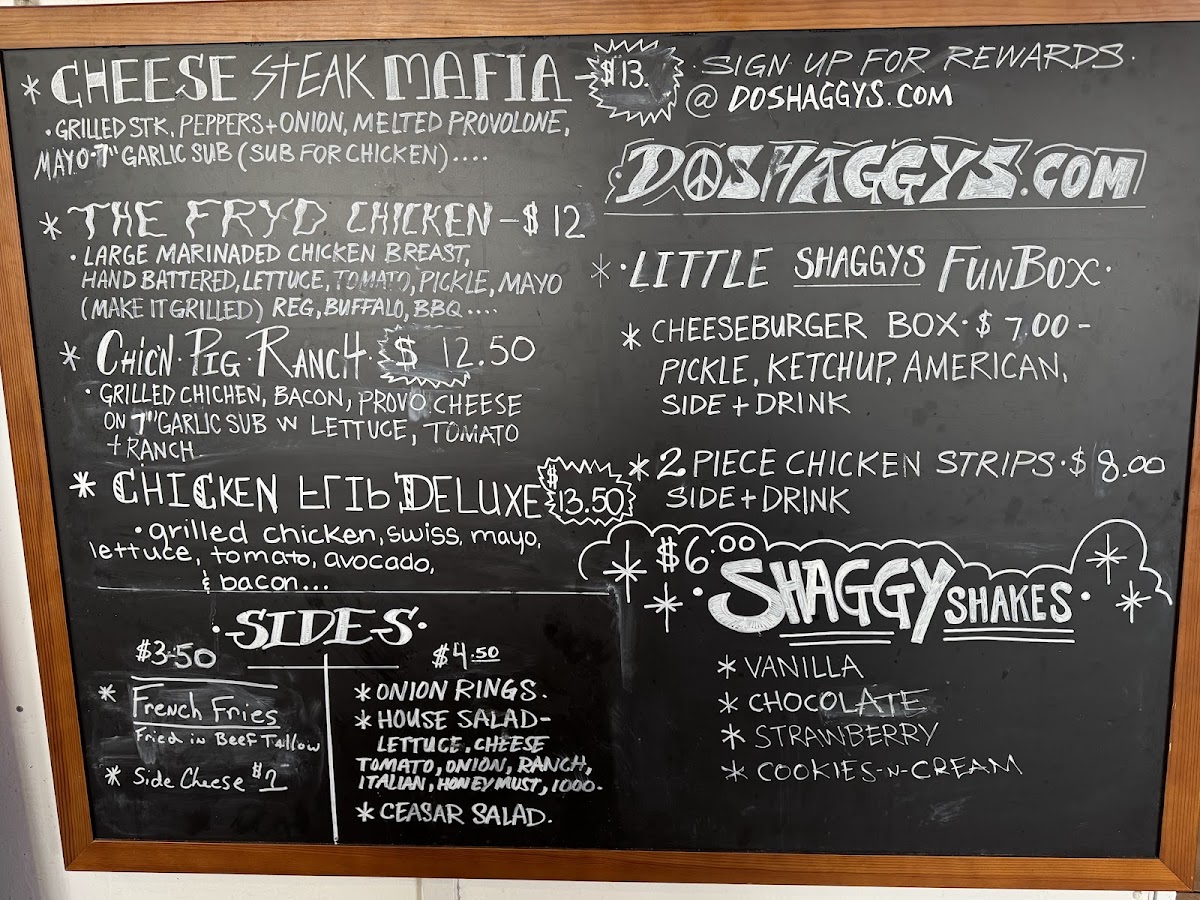 * CHEESE STEAK MAFIA - $13.
• GRILLED STK, PEPPERS + ONION, MELTED PROVOLONE,
MAYO-7" GARLIC SUB (SUB FOR CHICKEN)....
* THE FRYD CHICKEN - $12
• LARGE MARINADED CHICKEN BREAST,
HAND BATTERED, LETTUCE, TOMATO, PICKLE, MAYO
(MAKE IT GRILLED) REG, BUFFALO, BBQ....
* CHIC'N • PIG • RANCH • $ 12.50
• GRILLED CHICHEN, BACON, PROVO CHEESE
ON 7" GARLIC SUB W LETTUCE, TOMATO
+ RANCH.
* CHICKEN DELUXE $13.50
• grilled chicken, swiss, mayo,
lettuce, tomato, avocado,
& bacon...
• SIDES •
$3.50
* French Fries
Fried in Beef Tallow
* Side Cheese $1
$4.50
* ONION RINGS.
* HOUSE SALAD-
LETTUCE, CHEESE
TOMATO, ONION, RANCH,
ITALIAN, HONEY MUST, 1000.
* CEASAR SALAD.
• SIGN UP FOR REWARDS •
@ DOSHAGGYS.COM
DOSHAGGYS.COM
* • LITTLE SHAGGYS FUNBOX •
* CHEESEBURGER BOX • $ 7.00 -
PICKLE, KETCHUP, AMERICAN,
SIDE + DRINK
* 2 PIECE CHICKEN STRIPS • $ 8.00
SIDE + DRINK
$6.00
• SHAGGY SHAKES •
* VANILLA
* CHOCOLATE
* STRAWBERRY
* COOKIES-N-CREAM